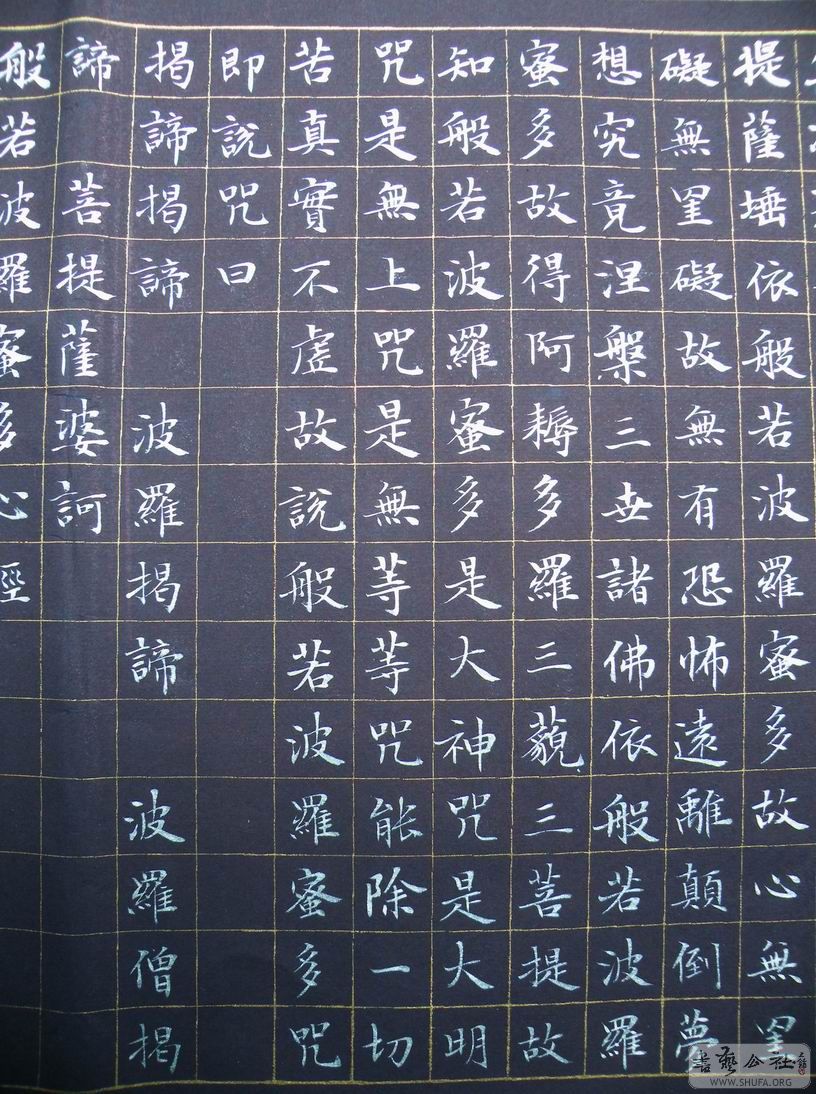 提薩埵依般若波羅蜜多故心無罣
礙無罣礙故無有恐怖遠離顛倒夢
想究竟涅槃三世諸佛依般若波羅
蜜多故得阿耨多羅三藐三菩提故
知般若波羅蜜多是大神咒是大明
咒是無上咒是無等等咒能除一切
苦真實不虛故說般若波羅蜜多咒
即說咒曰
揭諦揭諦 波羅揭諦 波羅僧揭
諦 菩提薩婆訶
般若波羅蜜多心經
書藝公社
WWW.SHUFA.ORG